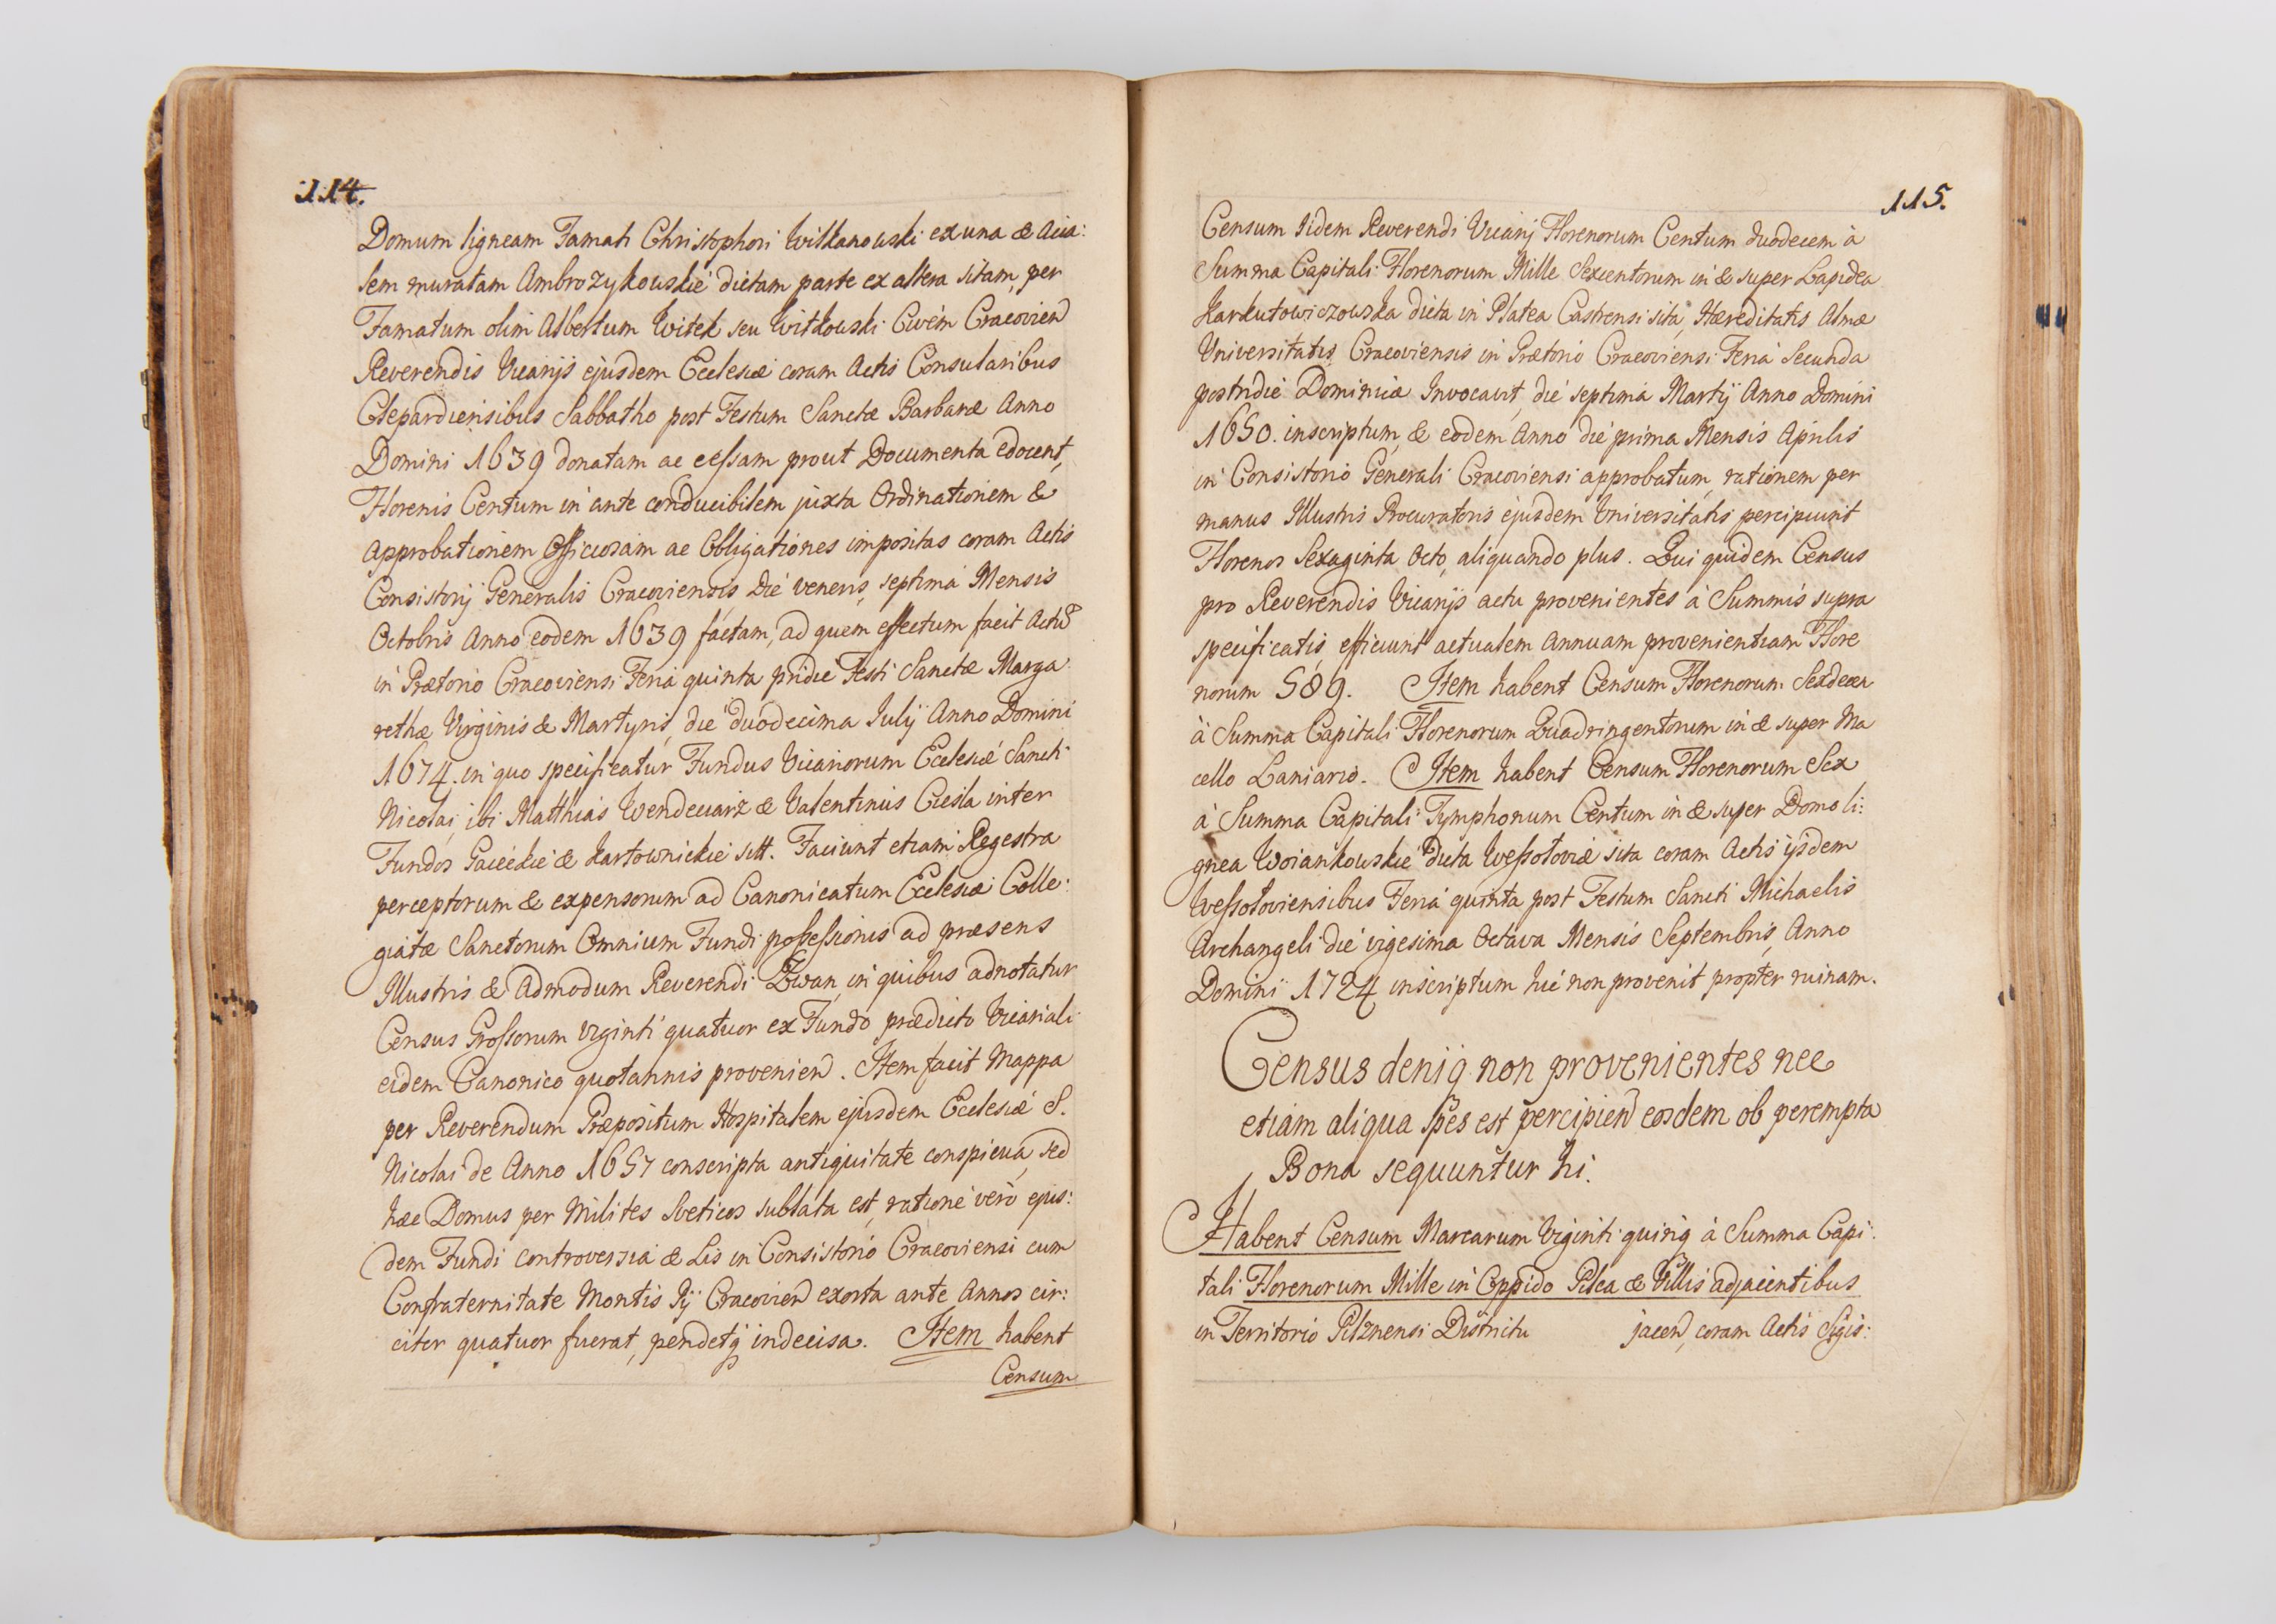 114.
Domum ligneam Famati Christophori Witkanowski ex una & Acia:
lem muratam Ambrozykowskie dictam parte ex altera sitam, per
Famatum olim Albertum Witek seu Witkowski Civem Cracovien
Reverendis Vicarijs ejusdem Ecclesiæ coram Actis Consularibus
Clepardiensibus Sabbatho post Festum Sanctæ Barbaræ Anno
Domini 1639 donatam ac cessam prout Documenta edocent,
Florenis Centum in ante conducibilem juxta Ordinationem &
Approbationem Officiosam ac Obligationes impositas coram Actis
Consistorij Generalis Cracoviensis Die Veneris septima Mensis
Octobris Anno eodem 1639 factam, ad quem effectum facit Actus
in Prætorio Cracoviensi Feria quinta pridie Festi Sanctæ Marga
rethæ Virginis & Martyris, die duodecima Julij Anno Domini
1674. in quo specificatur Fundus Vicariorum Ecclesiæ Sancti
Nicolai, ibi Matthias Wendecuarz & Valentinus Ciesla inter
Fundos Gaieckie & Kartownickie sitt. Faciunt etiam Regestra
perceptorum & expensorum ad Canonicatum Ecclesiæ Colle:
giatæ Sanctorum Omnium Fundi possessionis ad præsens
Illustris & Admodum Reverendi Zwan, in quibus adnotatur
Census Grossorum viginti quatuor ex Fundo prædicto Vicariali
eidem Canonico quotannis provenien. Item facit Mappa
per Reverendum Præpositum Hospitalem ejusdem Ecclesiæ S.
Nicolai de Anno 1657 conscripta antiquitate conspicua, sed
hæc Domus per Milites Sveticos sublata est, ratione vero ejus:
dem Fundi controversia & Lis in Consistorio Cracoviensi cum
Confraternitate Montis Pij Cracovien exorta ante Annos cir:
citer quatuor fuerat, pendetq indecisa. Item habent
Censum
115.
Censum iidem Reverendi Vicarij Florenorum Centum duodecem à
Summa Capitali Florenorum Mille Sexcentorum in & super Lapidea
Karkutowiczowska dicta in Platea Castrensi sita, Hæreditatis Almæ
Universitatis Cracoviensis in Prætorio Cracoviensi Feria Secunda
postridie Dominicæ Invocavit, die septima Martij Anno Domini
1650. inscriptum, & eodem Anno die prima Mensis Aprilis
in Consistorio Generali Cracoviensi approbatum, rationem per
manus Illustris Procuratoris ejusdem Universitatis percipiunt
Florenos Sexaginta Octo, aliquando plus. Qui quidem Census
pro Reverendis Vicarijs actu provenientes à Summis supra
specificatis, efficiunt actualem annuam provenientiam Flore
norum 589. Item habent Censum Florenorum Sexdecem
à Summa Capitali Florenorum Quadringentorum in & super Ma
cello Laniario. Item habent Censum Florenorum Sex
à Summa Capitali Tymphonum Centum in & super Domo li:
gnea Woiankowskie Dicta Wessołoviæ sita coram Actis ijsdem
Wessołoviensibus Feria quinta post Festum Sancti Michaelis
Archangeli die vigesima Octava Mensis Septembris Anno
Domini 1724 inscriptum hic non provenit propter ruinam.
Census deniq non provenientes nec
etiam aliqua spes est percipien eosdem ob perempta
Bona sequuntur hi.
Habent Censum Marcarum Viginti quinq à Summa Capi:
tali Florenorum Mille in Oppido Pilca & Villis adjacentibus
in Territorio Pilznensi Districtu jacen, coram Actis Sigis: